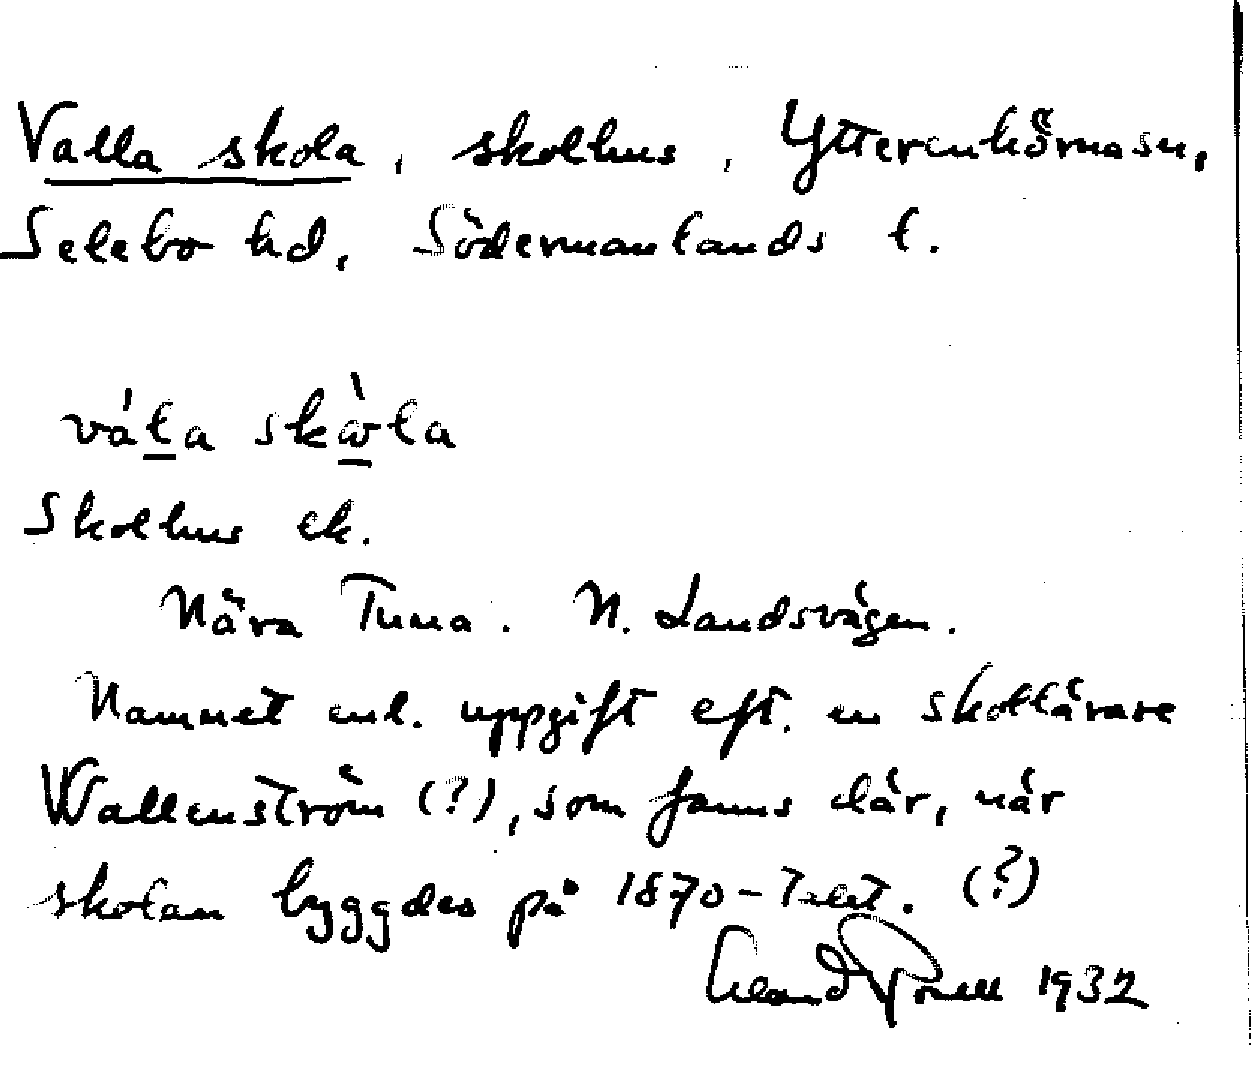 Valla skola, skolhus, Ytterenhörna sn,
Selebo hd, Södermanlands l.
vála skὼla
Skolhus ek.
Nära Tuna. N. Landsvägen.
Namnet enl. uppgift eft. en skollärare
Wallenström (?), som fanns där, när
skolan byggdes på 1870-talet. (?)
1932